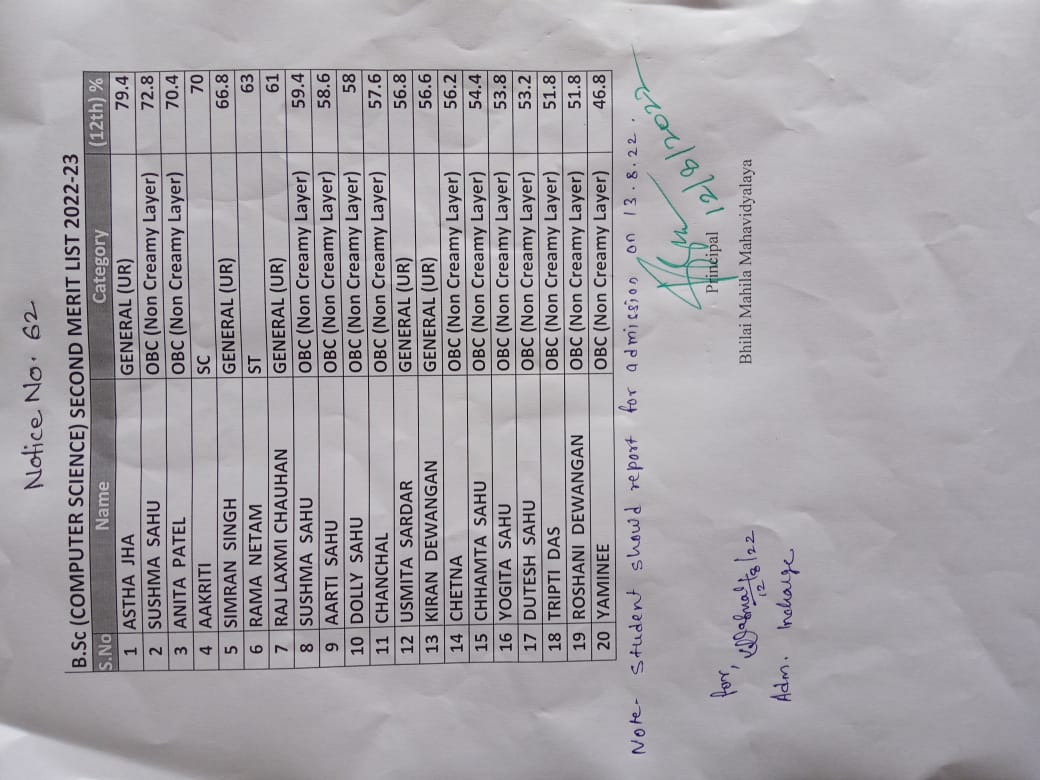 Notice No. 62
B.Sc (COMPUTER SCIENCE) SECOND MERIT LIST 2022-23
S.No Name Category (12th) %
1 ASTHA JHA GENERAL (UR) 79.4
2 SUSHMA SAHU OBC (Non Creamy Layer) 72.8
3 ANITA PATEL OBC (Non Creamy Layer) 70.4
4 AAKRITI SC 70
5 SIMRAN SINGH GENERAL (UR) 66.8
6 RAMA NETAM ST 63
7 RAJ LAXMI CHAUHAN GENERAL (UR) 61
8 SUSHMA SAHU OBC (Non Creamy Layer) 59.4
9 AARTI SAHU OBC (Non Creamy Layer) 58.6
10 DOLLY SAHU OBC (Non Creamy Layer) 58
11 CHANCHAL OBC (Non Creamy Layer) 57.6
12 USMITA SARDAR GENERAL (UR) 56.8
13 KIRAN DEWANGAN GENERAL (UR) 56.6
14 CHETNA OBC (Non Creamy Layer) 56.2
15 CHHAMTA SAHU OBC (Non Creamy Layer) 54.4
16 YOGITA SAHU OBC (Non Creamy Layer) 53.8
17 DUTESH SAHU OBC (Non Creamy Layer) 53.2
18 TRIPTI DAS OBC (Non Creamy Layer) 51.8
19 ROSHANI DEWANGAN OBC (Non Creamy Layer) 51.8
20 YAMINEE OBC (Non Creamy Layer) 46.8
Note- Student should report for admission on 13.8.22.
12/8/2022
Principal
Bhilai Mahila Mahavidyalaya
for,
12/8/22
Adm. Incharge